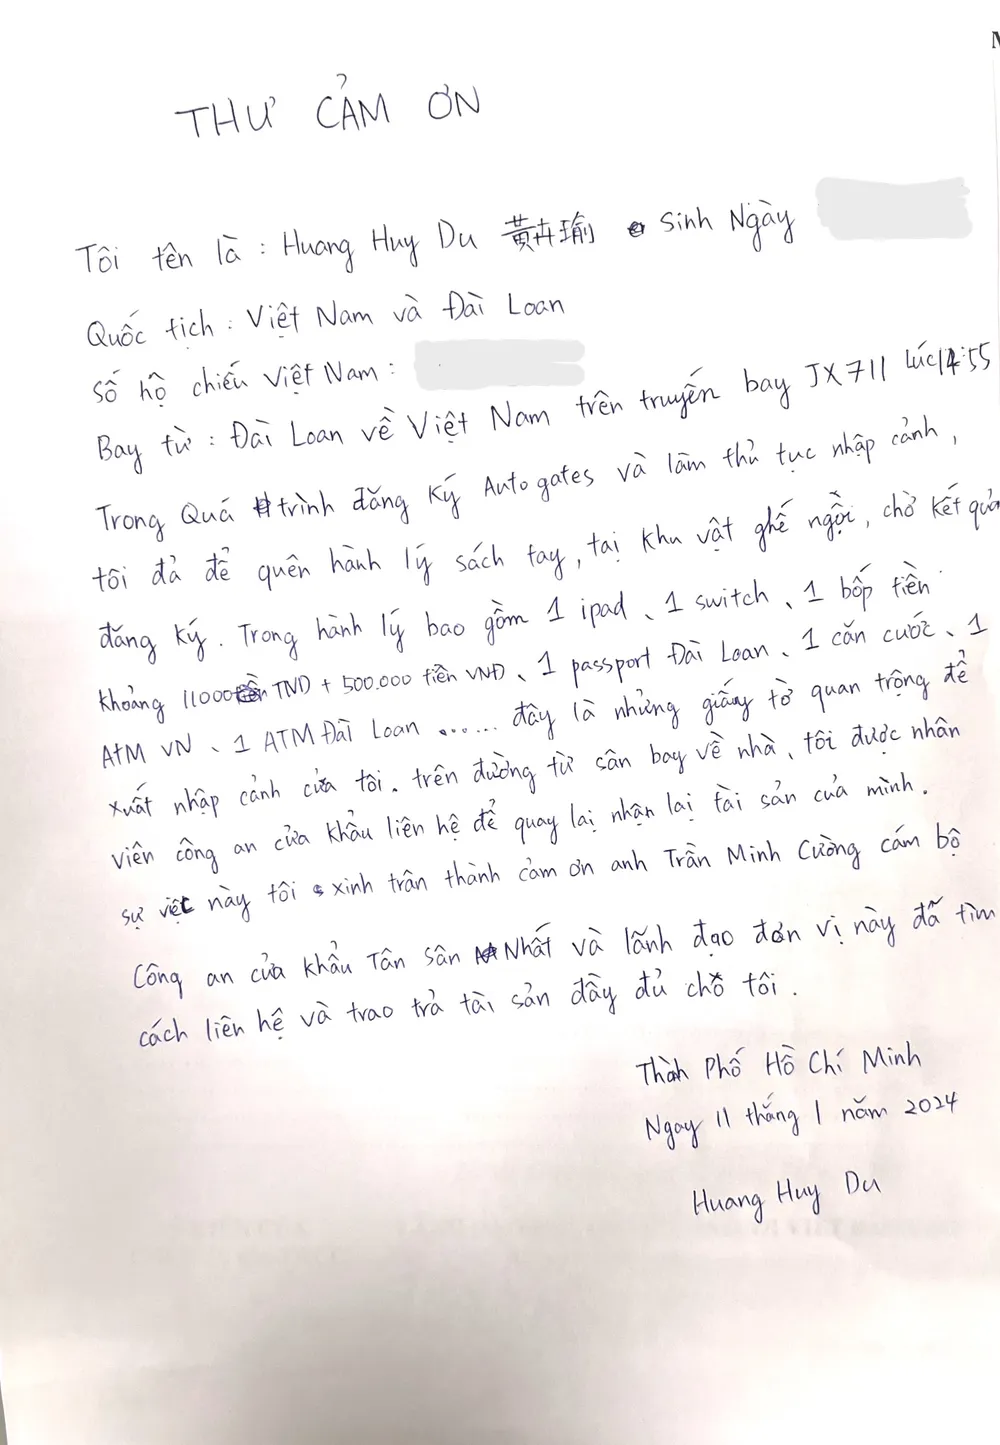 THƯ CẢM ƠN
Tôi tên là : Huang Huy Du 黃卉瑜 Sinh Ngày
Quốc tịch : Việt Nam và Đài Loan
Số hộ chiếu Việt Nam :
Bay từ : Đài Loan về Việt Nam trên truyến bay JX711 lúc 14:55
Trong Quá trình đăng ký Autogates và làm thủ tục nhập cảnh,
tôi đả để quên hành lý sách tay, tại khu vật ghế ngồi, chờ kết quả
đăng ký. Trong hành lý bao gồm 1 ipad、1 switch、1 bốp tiền
khoảng 11000 TND + 500.000 tiền VNĐ、1 passport Đài Loan、1 căn cước、1
ATM VN、1 ATM Đài Loan ........ đây là những giấy tờ quan trọng để
xuất nhập cảnh của tôi. trên đường từ sân bay về nhà, tôi được nhân
viên công an cửa khẩu liên hệ để quay lại nhận lại tài sản của mình.
sự việc này tôi xinh trân thành cảm ơn anh Trần Minh Cường cám bộ
Công an cửa khẩu Tân Sân Nhất và lãnh đạo đơn vị này đã tìm
cách liên hệ và trao trả tài sản đầy đủ chỗ tôi.
Thành Phố Hồ Chí Minh
Ngay 11 thắng 1 năm 2024
Huang Huy Du